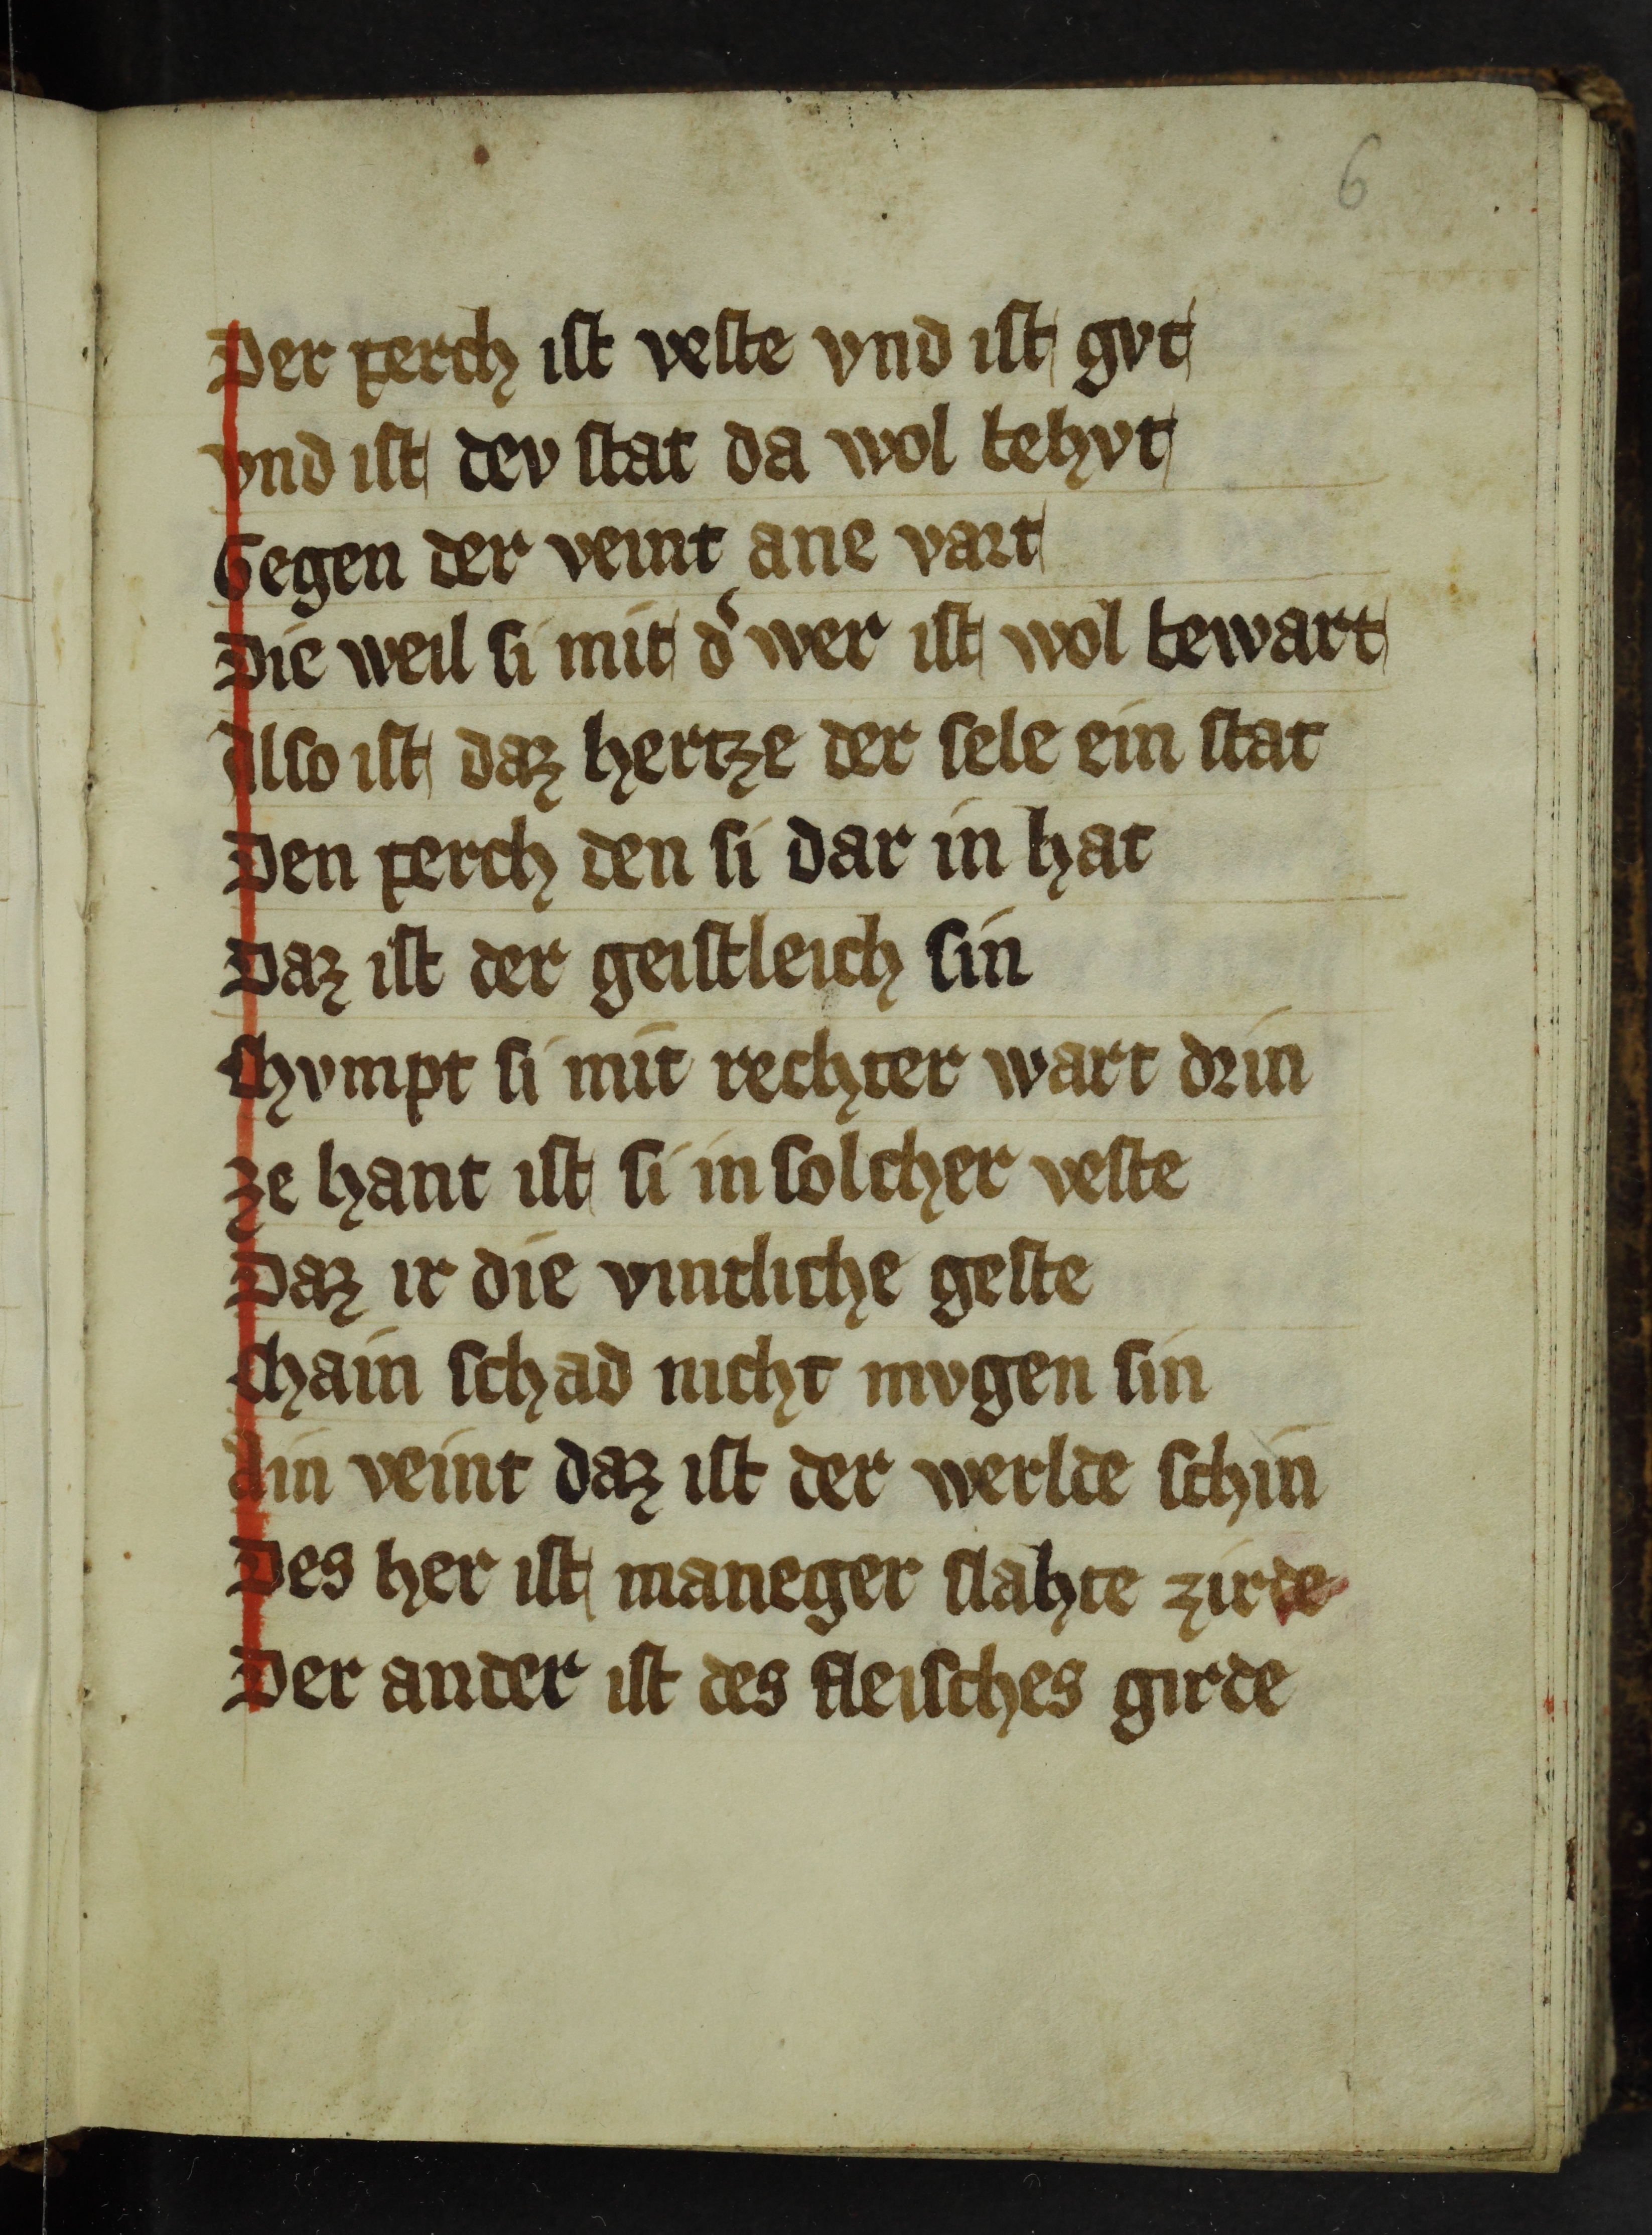 6
Der perch ist veste vnd ist gvt
vnd ist dev stat da wol behvt
Gegen der veint ane vart
Die weil si mit d͛ wer ist wol bewart
Also ist daz hertze der sele ein stat
Den perch den si dar in hat
Daz ist der geistleich sin
chvmpt si mit rechter wart drin
ze hant ist si in solcher veste
Daz ir die vintliche geste
chain schad nicht mvgen sin
Ain veint daz ist der werlde schin
Des her ist maneger slahte zirde
Der ander ist des fleisches girde